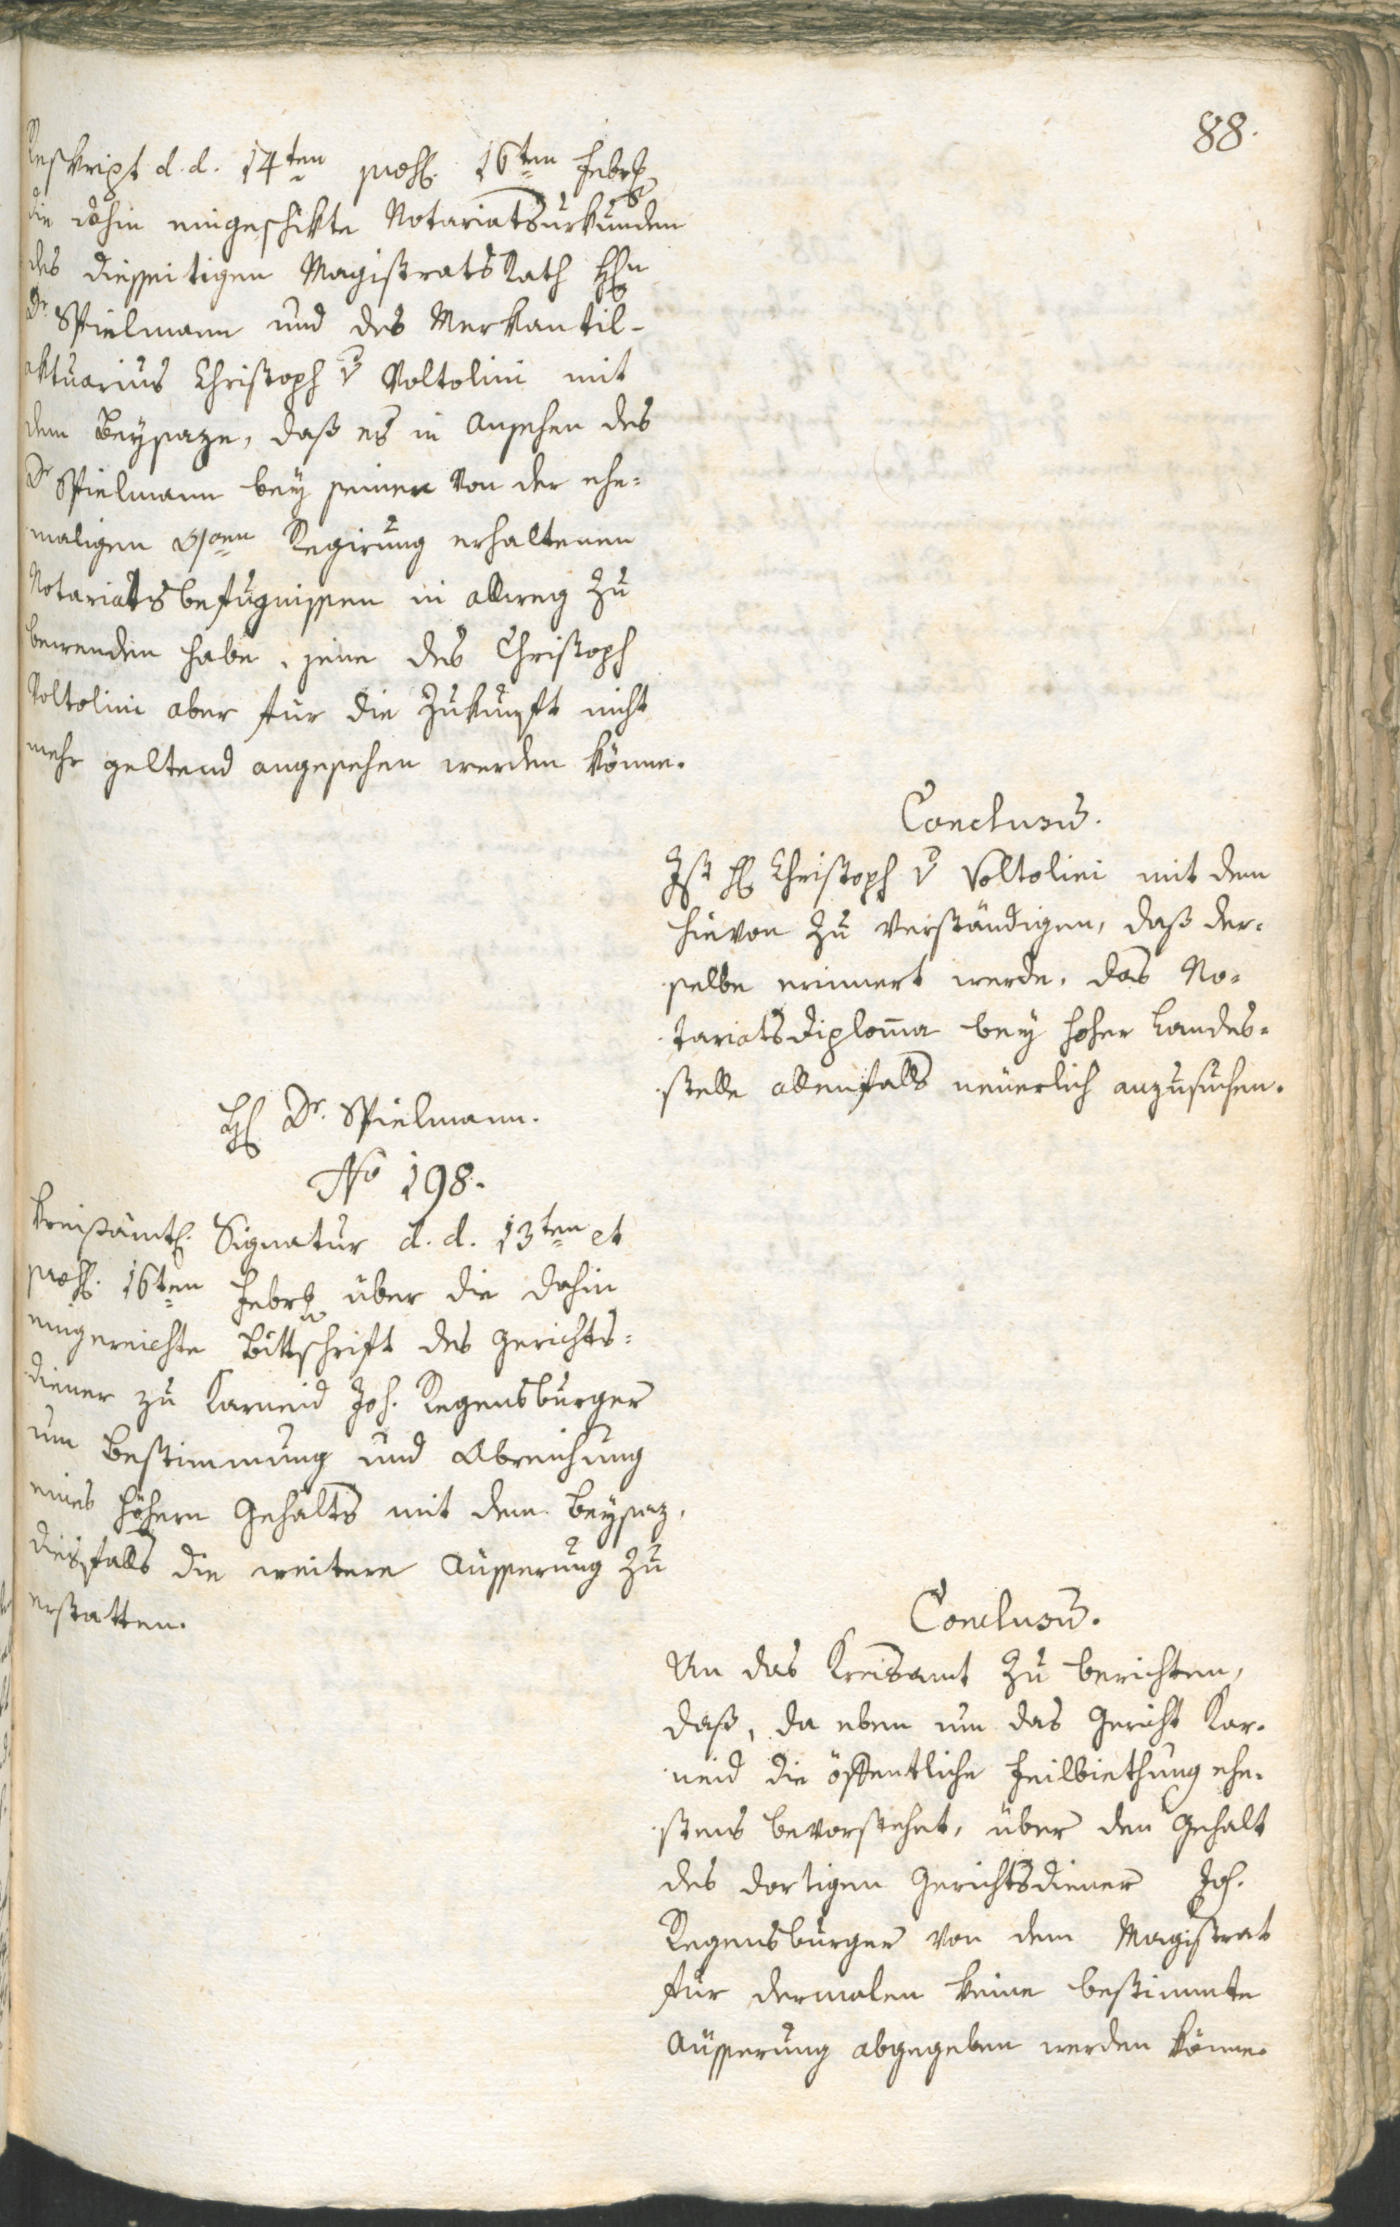 88.
Reskript d. d. 14ten præs. 16ten Febr.
die dahin eingeschikte Notariatsurkunden
des diesseitigen Magistrats Rath Hrn
Dr Spielmann und des Merkantil-
aktuarius Christoph v Voltolini mit
dem Beysaze, daß es in Ansehen des
Dr Spielmann bey seinen von der ehe-
maligen Regierung erhaltenen
Notariatsbefugnissen in allweg zu
bewenden habe, jene des Christoph
Voltolini aber für die Zukunft nicht
mehr geltend angesehen werden könne.
Conclusū.
Ist H. Christoph v Voltolini mit dem
hievon zu verständigen, daß der-
selbe erinnert werde, das No-
tariatsdiploma bey hoher Landes-
stelle allenfalls neüerlich anzusuchen.
H. Dr. Spielmann.
No 198.
Kreisämtl. Signatur d. d. 13ten et
præs. 16ten Febr. über die dahin
eingereichte Bittschrift des Gerichts-
diener zu Karneid Joh. Regensburger
um Bestimmung und Abreichung
eines höhern Gehalts mit dem Beysaz,
diesfalls die weitere Aüsserung zu
erstatten.
Conclusū.
An das Kreisamt zu berichten,
daß, da eben um das Gericht Kar-
neid die öffentliche Feilbiethung ehe-
stens bevorstehet, über den Gehalt
des dortigen Gerichtsdiener Joh.
Regensburger von dem Magistrat
für dermalen keine bestimmte
Aüsserung abgegeben werden könne.